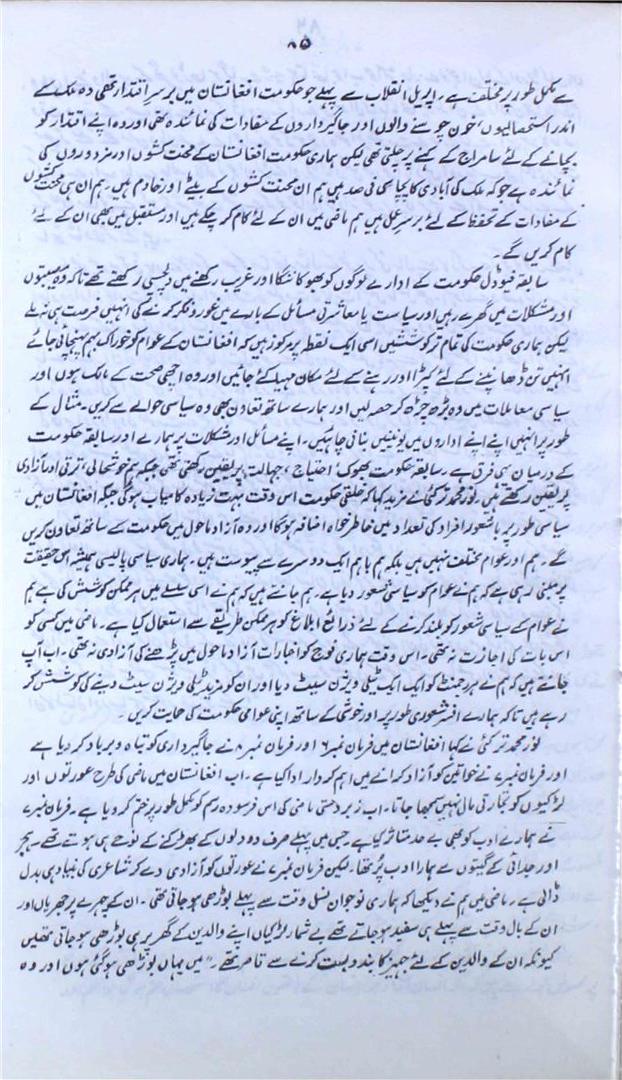 ۸۵
سے مکمل طور پر مختلف ہے۔ اپریل انقلاب سے پہلے جو حکومت افغانستان میں برسر اقتدار تھی وہ ملک کے
اندر استحصالیوں، خون چوسنے والوں اور جاگیرداروں کے مفادات کی نمائندہ تھی اور وہ اپنے اقتدار کو
بچانے کے لئے سامراج کے کہنے پر چلتی تھی لیکن ہماری حکومت افغانستان کے محنت کشوں اور مزدوروں کی
نمائندہ ہے جو کہ ملک کی آبادی کا پچانوے فی صد ہیں ہم ان محنت کشوں کے بیٹے اور خادم ہیں۔ ہم ان ہی محنت کشوں
کے مفادات کے تحفظ کے لئے برسر عمل ہیں ہم ماضی میں ان کے لئے کام کر چکے ہیں اور مستقبل میں بھی ان کے لئے
کام کریں گے۔
سابقہ فیوڈل حکومت کے ادارے لوگوں کو بھوکا ننگا اور غریب رکھنے میں دلچسپی رکھتے تھے تاکہ وہ مصیبتوں
اور مشکلات میں گھرے رہیں اور سیاست یا معاشرتی مسائل کے بارے میں غور و فکر کرنے کی انہیں فرصت ہی نہ ملے
لیکن ہماری حکومت کی تمام تر کوششیں اسی ایک نقطہ پر مرکوز ہیں کہ افغانستان کے عوام کو خوراک بہم پہنچائی جائے
انہیں تن ڈھانپنے کے لئے کپڑا اور رہنے کے لئے مکان مہیا کئے جائیں اور وہ اچھی صحت کے مالک ہوں اور
سیاسی معاملات میں وہ بڑھ چڑھ کر حصہ لیں اور ہمارے ساتھ تعاون بھی وہ سیاسی حوالے سے کریں۔ مثال کے
طور پر انہیں اپنے اپنے اداروں میں یونینیں بنانی چاہئیں۔ اپنے مسائل اور مشکلات پر ہمارے اور سابقہ حکومت
کے درمیان یہی فرق ہے۔ سابقہ حکومت بھوک، احتیاج، جہالت پر یقین رکھتی تھی جبکہ ہم خوشحالی، ترقی اور آزادی
پر یقین رکھتے ہیں۔ نور محمد ترکئی نے مزید کہا کہ خلقی حکومت اس وقت بہت زیادہ کامیاب ہوگی جبکہ افغانستان میں
سیاسی طور پر باشعور افراد کی تعداد میں خاطر خواہ اضافہ ہوگا اور وہ آزاد ماحول میں حکومت کے ساتھ تعاون کریں
گے۔ ہم اور عوام مختلف نہیں ہیں بلکہ ہم باہم ایک دوسرے سے پیوست ہیں۔ ہماری سیاسی پالیسی ہمیشہ اس حقیقت
پر مبنی رہی ہے کہ ہم نے عوام کو سیاسی شعور دیا ہے۔ ہم جانتے ہیں کہ ہم نے اسی سلسلے میں ہر ممکن کوشش کی ہے ہم
نے عوام کے سیاسی شعور کو بلند کرنے کے لئے ذرائع ابلاغ کو ہر ممکن طریقے سے استعمال کیا ہے۔ ماضی میں کسی کو
اس بات کی اجازت نہ تھی۔ اس وقت ہماری فوج کو اخبارات آزاد ماحول میں پڑھنے کی آزادی نہ تھی۔ اب آپ
جانتے ہیں کہ ہم نے ہر رجمنٹ کو ایک ایک ٹیلی ویژن سیٹ دیا اور ان کو مزید ٹیلی ویژن سیٹ دینے کی کوشش کر
رہے ہیں تاکہ ہمارے افسر شعوری طور پر اور خوشی کے ساتھ اپنی عوامی حکومت کی حمایت کریں۔
نور محمد ترکئی نے کہا افغانستان میں فرمان نمبر ۶ اور فرمان نمبر ۸ نے جاگیرداری کو تباہ و برباد کر دیا ہے
اور فرمان نمبر ۷ نے خواتین کو آزاد کرانے میں اہم کردار ادا کیا ہے۔ اب افغانستان میں ماضی کی طرح عورتوں اور
لڑکیوں کو تجارتی مال نہیں سمجھا جاتا۔ اب زبردستی ماضی کی اس فرسودہ رسم کو مکمل طور پر ختم کر دیا ہے۔ فرمان نمبر ۷
نے ہمارے ادب کو بھی بے حد متاثر کیا ہے۔ جس میں پہلے صرف دو دلوں کے بھڑکنے کے نوحے ہی ہوتے تھے۔ ہجر
اور جدائی کے گیتوں سے ہمارا ادب پُر تھا۔ لیکن فرمان نمبر ۷ نے عورتوں کو آزادی دے کر شاعری کی بنیاد ہی بدل
ڈالی ہے۔ ماضی میں ہم نے دیکھا کہ ہماری نوجوان نسل وقت سے پہلے بوڑھی ہو جاتی تھی۔ ان کے چہرے پر جھریاں اور
ان کے بال وقت سے پہلے ہی سفید ہو جاتے تھے بے شمار لڑکیاں اپنے والدین کے گھر پر ہی بوڑھی ہو جاتی تھیں
کیونکہ ان کے والدین کے لئے جہیز کا بندوبست کرنے سے قاصر تھے۔ "میں یہاں بوڑھی ہو گئی ہوں اور وہ